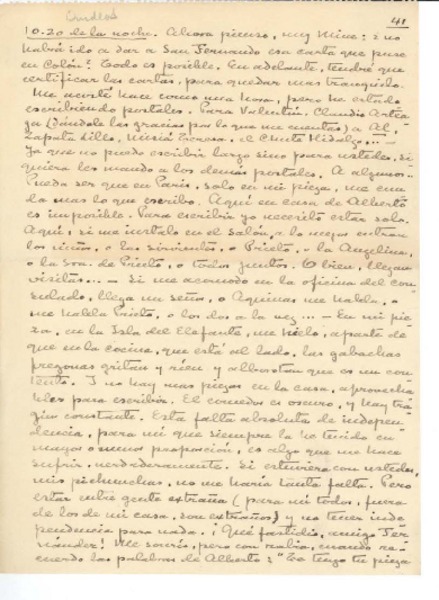 41
10.20 de la noche. Ahora pienso, mi Mine: ¿no
habrá ido a dar a San Fernando esa carta que puse
en Colón? Todo es posible. En adelante, tendré que
certificar las cartas, para quedar más tranquilo.
Me acosté hace como una hora, pero he estado
escribiendo postales. Para Valentín, Claudio Artea-
ga (dándole las gracias por lo que me cuentas) a Al,
Zapata Lillo, Misiá Teresa, el Chute Hidalgo...
Ya que no puedo escribir largo sino para ustedes, si
quiera les mando a los demás postales. A algunos.
Pueda ser que en París, solo en mi pieza, me cun-
da más lo que escribo. Aquí en casa de Alberto
es imposible. Para escribir yo necesito estar solo.
Aquí, si me instalo en el salón, a lo mejor entran
los niños, o las sirvientes, o Prieto, o la Angelina,
o la Sra. de Prieto, o todos juntos. O bien, llegan
visitas... Si me acomodo en la oficina del con-
sulado, llega un señor, o Aquinas me habla, o
me habla Prieto, o los dos a la vez... En mi pie-
za, en la Isla del Elefante, me hielo, aparte de
que en la cocina, que está al lado, las gabachas
fregonas gritan y ríen y alborotan que es un con-
tento. I no hay más piezas en la casa, aprovecha-
bles para escribir. El comedor es oscuro, y hay trá-
gin constante. Esta falta absoluta de indepen-
dencia, para mí que siempre la he tenido en
mayor o menor proporción, es algo que me hace
sufrir, verdaderamente. Si estuviera con ustedes,
mis pichunchas, no me haría tanta falta. Pero
estar entre gente extraña (para mí todos, fuera
de los de mi casa, son extraños) y no tener inde-
pendencia para nada. ¡Qué fastidio, amigo Fer-
nández! Me sonrío, pero con rabia, cuando re-
cuerdo las palabras de Alberto: "Te tengo tu pieza